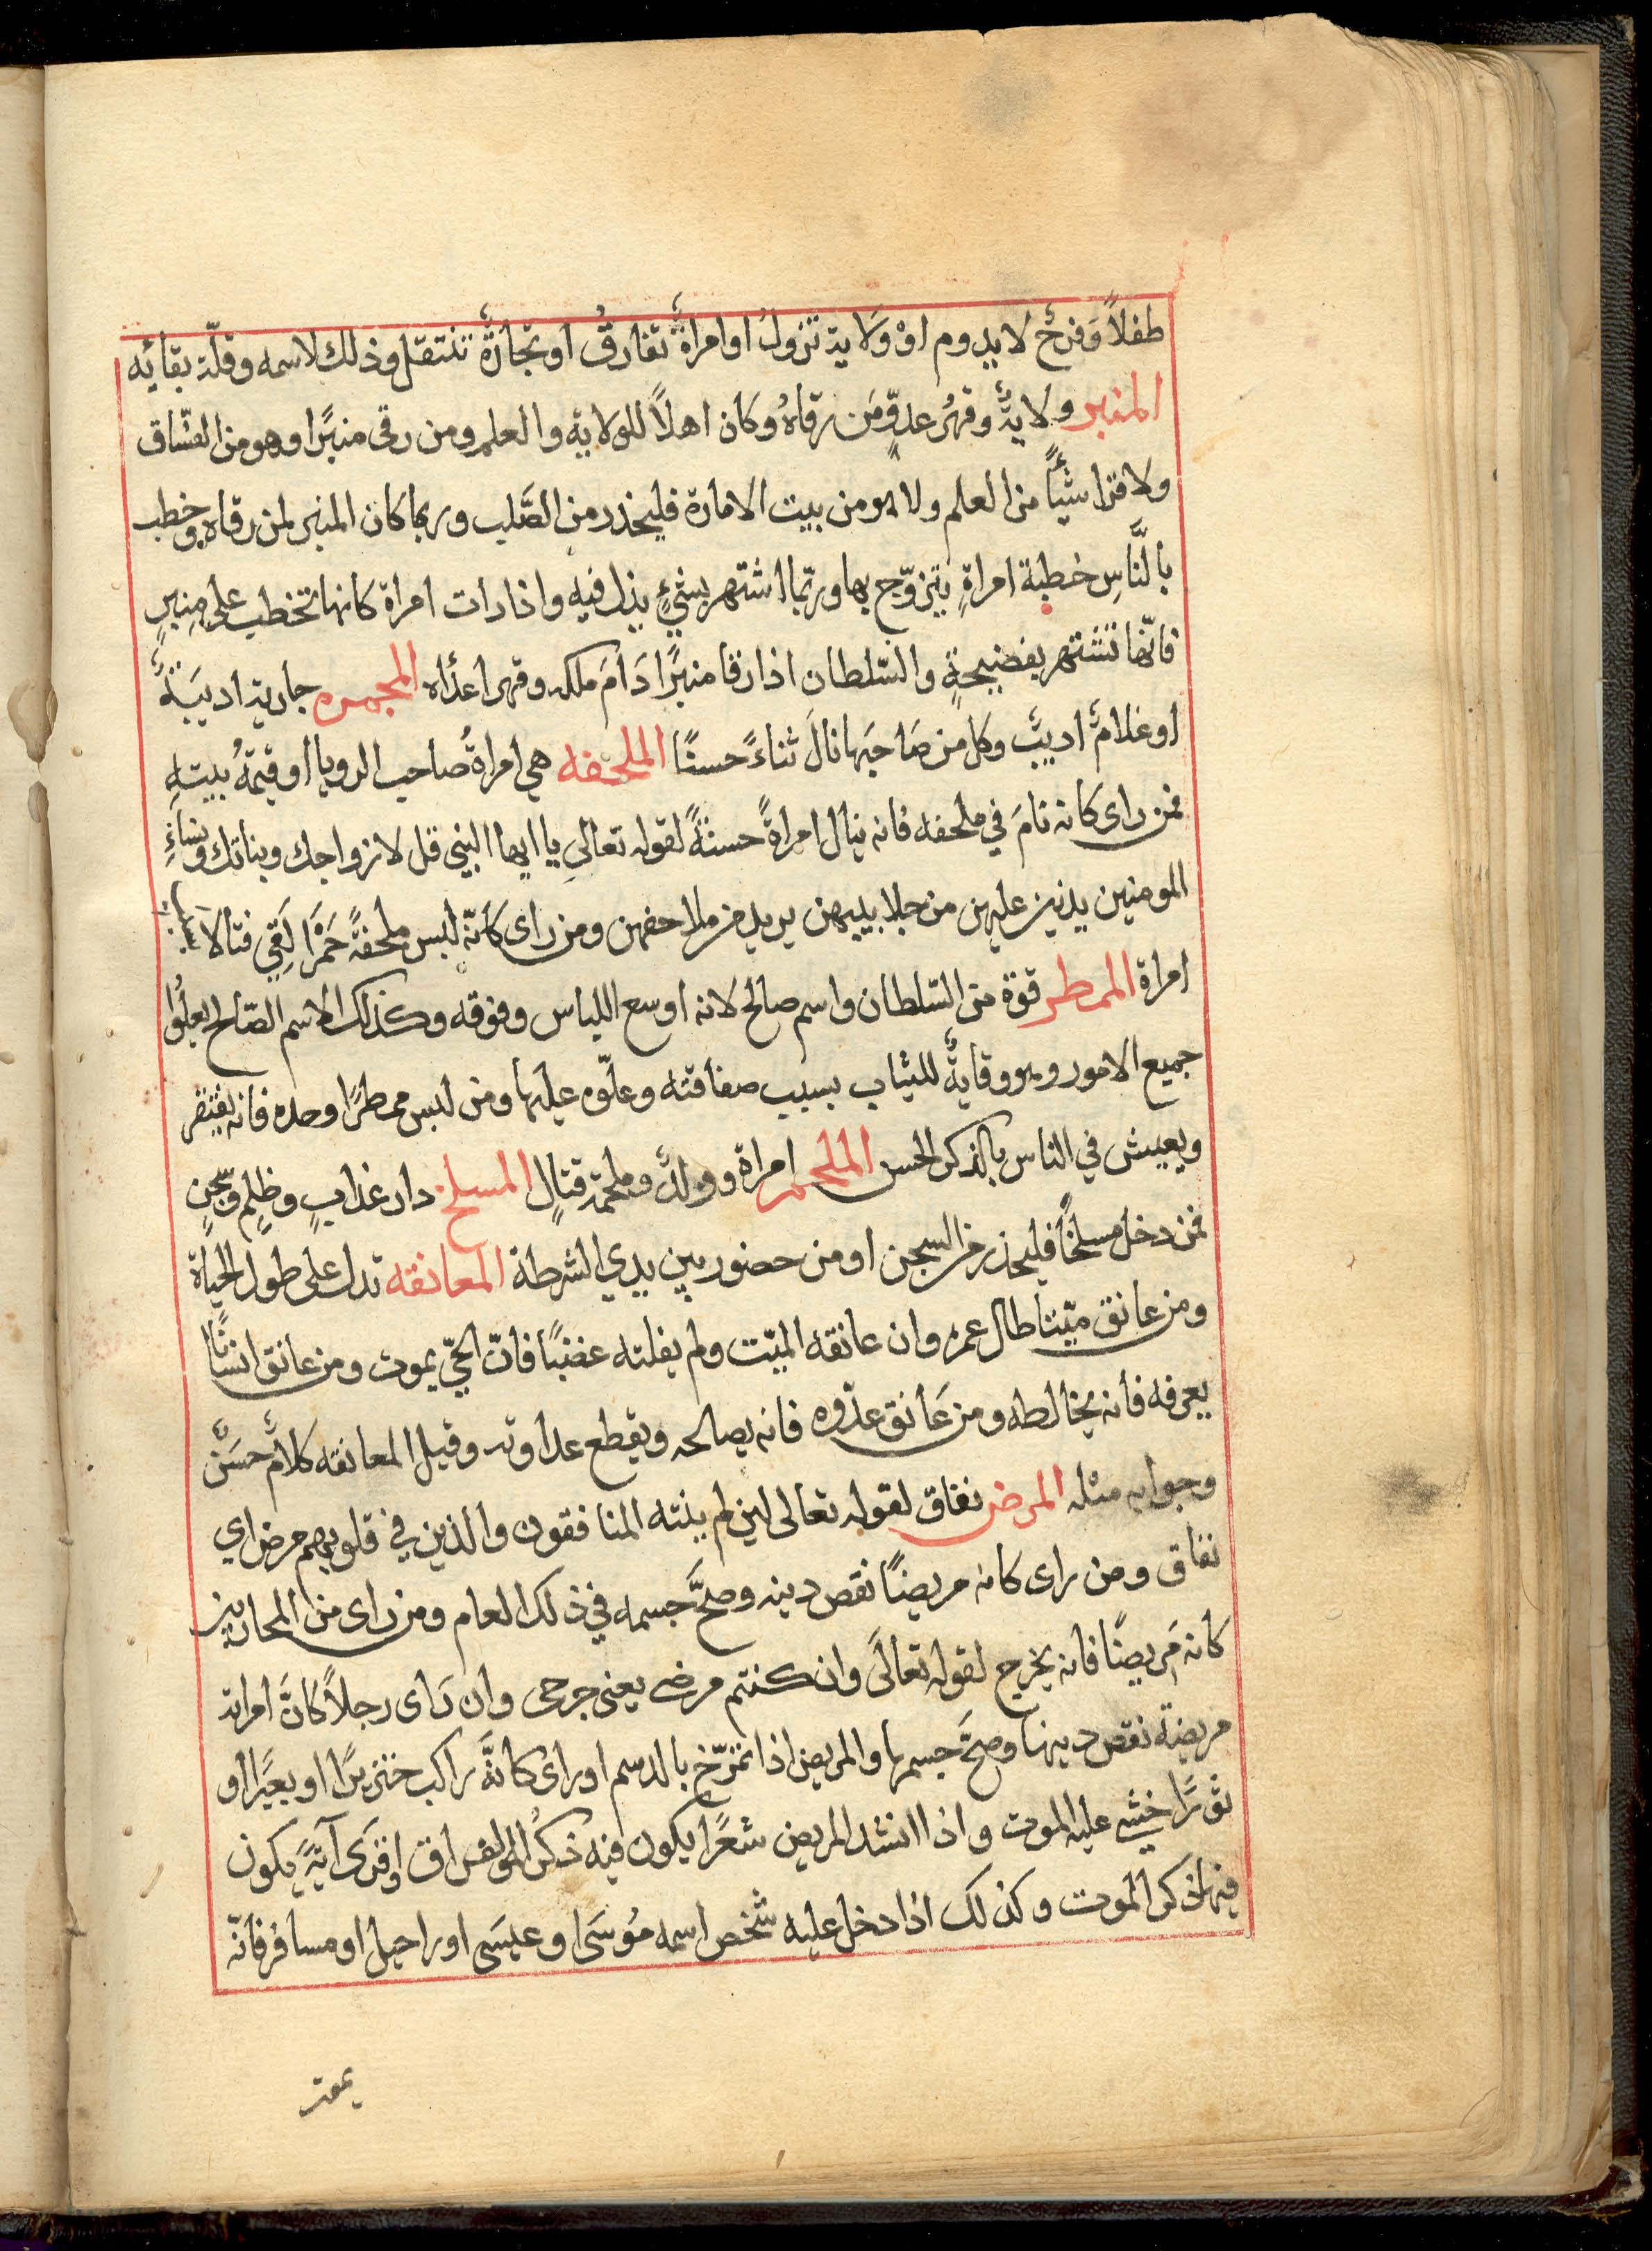 طفلاً وَفرحٌ لا يدوم اوْ وَلاية تزولُ او امراةٌ تفارقُ او تجارةٌ تنتقل وذلك لاسمه وقلّة بقائه
المنبر ولايةٌ وقهرُ عدوٍّ مَن رقاهُ وكان اهلاً للولاية والعلم ومن رقى منبرًا وهو من الفسّاق
ولا قرا شيأً من العلم ولا هو من بيت الامارة فليحذر من الصَّلب وربما كان المنبر لمن رقاه وخطب
بالنَّاسِ خطبة امراةٍ يتزوّج بها وربّما اشتهر بشيءٍ يذل فيه واذا رات امراة كانها تخطب على منبرٍ
فانّها تشتهر بفضيحةٍ والسّلطان اذا رقا منبرًا دَامَ ملكه وقهر اعدٔاه المجمره جارية اديبَةٌ
او غلامٌ اديبٌ وكل من صَاحبَها نالَ ثناءً حسنًا الملحفه هي امراةُ صاحب الرويا او قيمةُ بيتهِ
فمن راى كانه نامَ في ملحفه فانه ينال امراةً حسنةً لقوله تعالى يا ايها النبي قل لازواجك وبناتك ونساءِ
المومنين يدنين عليهن من جلابيبهن يريد من ملاحفهن ومن راى كَانّه لبس ملحفةً حَمْرَا لَقِي قتالا
امراة الممطر قوة من السّلطان واسم صالح لانه اوسع اللباس وفوقه وكذلك الاسم الصّالح يعلُوا
جميع الامور وهو وقايةٌ للثياب بسبب صفاقته وعلّوه عليها ومن لبس ممطرًا وحده فانه يفتقر
ويعيش في الناس بالذكر الحسن الملحم امراة وولدٌ وملحمة قتالٍ المسلخ دار عذابٍ وظلمٍ وسِّجنٍ
فمن دخل مسلخًا فليحذر من السجن او من حضور بين يدي الشرطة المعانقه تدل على طول الحَيَاة
ومن عانق ميّتا طال عمره وان عانقه الميّت ولم يفلته غضبًا فانّ الحيّ يموت ومن عانق انسانًا
يعرفه فانه يخالطه ومن عَانق عدّوه فانه يصالحه ويقطع عداوته وقيل المعانقه كلامٌ حسَنٌ
وجوابه مثله المرض نفاق لقوله تعالى لين لم ينته المنافقون والذين في قلوبهم مرض اي
نفاق ومن راى كانه مريضًا نقص دينه وصحَّ جسمه في ذلك العام ومن راى من المحاربين
كانه مَريضًا فانه يخرج لقوله تعالَى وان كنتم مرضى يعنى جرحى وان رَاى رجلاً كانَّ امراته
مريضة نقص دينها وصحَّ جسمها والمريض اذا تمرّخ بالدسم او راى كانَّه راكب خنزيرًا او بعيرًا او
ثورًا خشي عليه الموت واذا انشد المريض شعرًا يكون فيه ذكرُ الموت والفراق او قرى آيَةً يكون
فيها ذكر الموت وكذلك اذا دخل عليه شخص اسمه مُوسَى او عيسَى او راحيل او مسافر فانّه
يموت